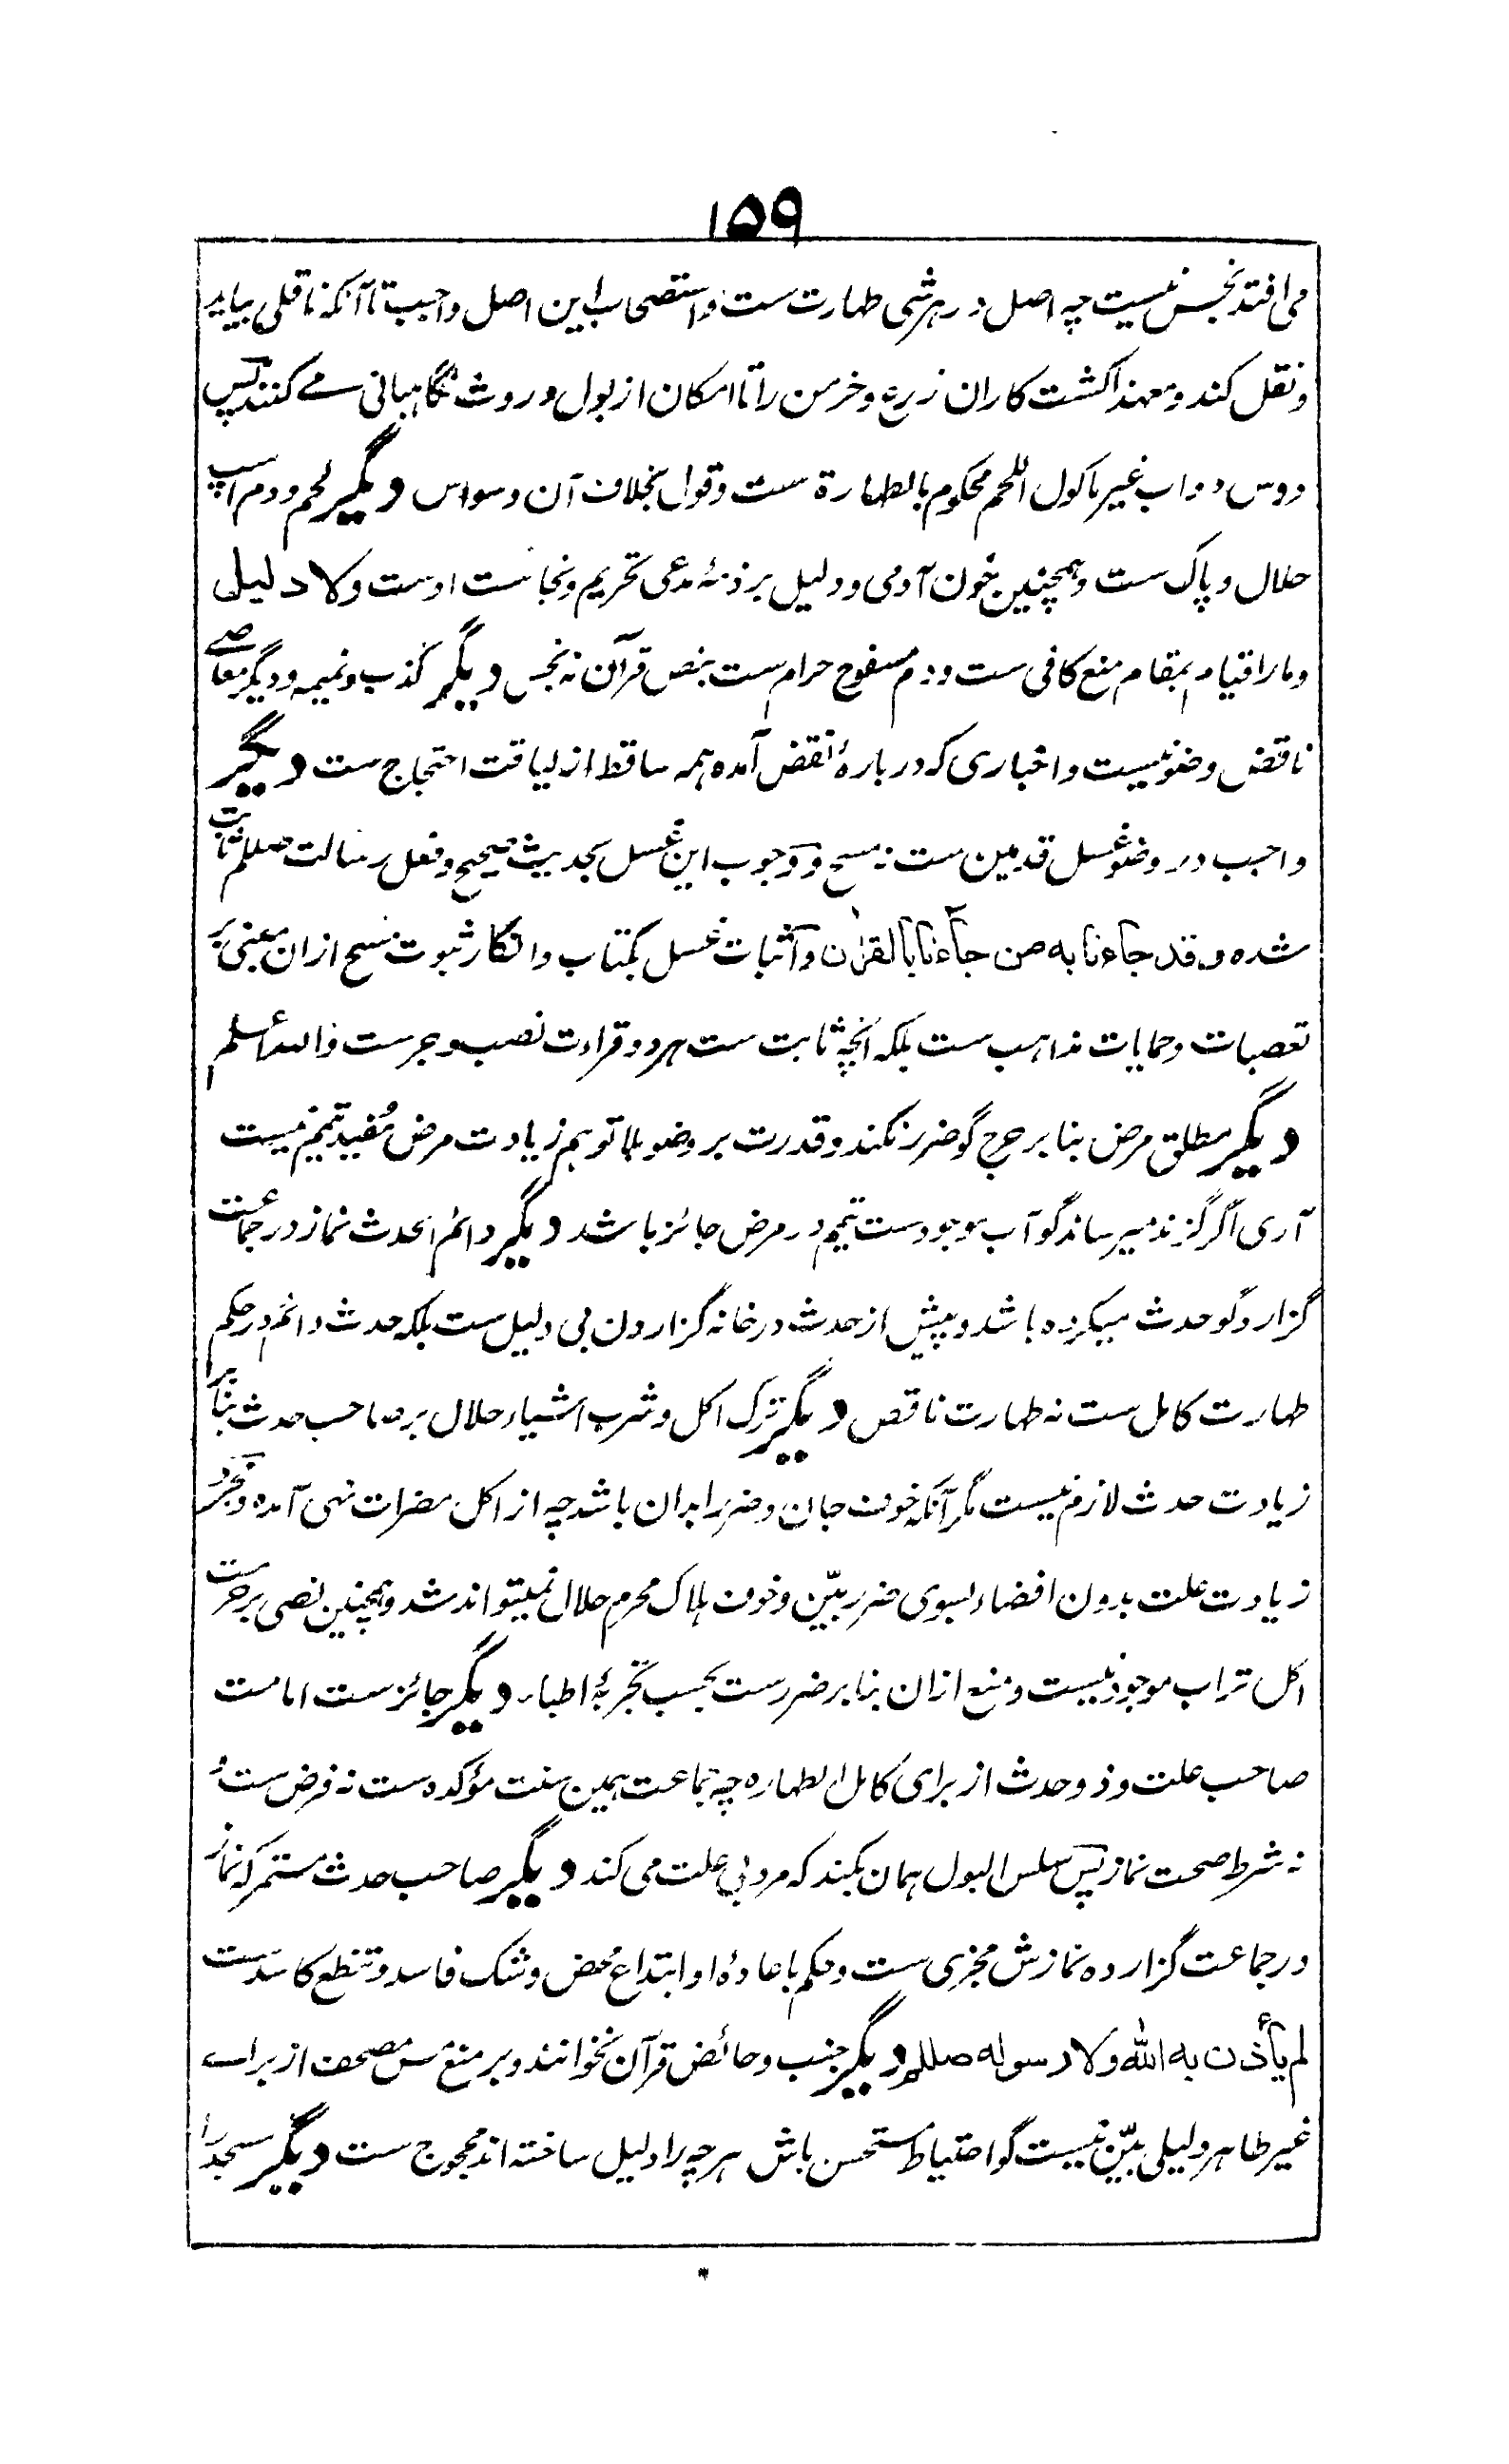 ۱۵۹
می افتد نجس نیست چه اصل در هرشی طهارت ست و استصحاب این اصل واجب تا آنکه ناقلی بیاید
و نقل کند و معهذا کشت کاران زرع و خرمن را تا امکان از بول و روث نگاهبانی مے کنند پس
دوس دواب غیر ماکول اللحم محکوم بالطهارة ست و قول بخلاف آن وسواس دیگر لحم و دم اسپ
حلال و پاک ست و همچنین خون آدمی و دلیل بر ذمهٔ مدعی تحریم و نجاست اوست ولا دلیلی
و ما را قیام بمقام منع کافی ست و دم مسفوح حرام ست بنص قرآن نه نجس دیگر کذب و نمیمه و دیگر معاصے
ناقض وضو نیست و اخباری که دربارهٔ نقض آمده همه ساقط از لیاقت احتجاج ست دیگر
واجب در وضو غسل قدمین ست نه مسح و وجوب این غسل بحدیث صحیح و فعل رسالت صللم ثابت
شده وقد جاءنا به من جاءنا بالقرٰن و اثبات غسل بکتاب و انکار ثبوت مسح ازان مبنی بر
تعصبات و حمایات مذاهب ست بلکه آنچه ثابت ست هر دو قراءت نصب و جر ست والله اعلم
دیگر مطلق مرض بنا بر حرج گو ضرر نکند و قدرت بر وضو بلا توهم زیادت مرض مفید تیمم نیست
آری اگر گزند میرساند گو آب موجودست تیمم در مرض جائز باشد دیگر دائم الحدث نماز در جماعت
گزارد گو حدث میکرده باشد و پیش از حدث در خانه گزاردن بی دلیل ست بلکه حدث دائم در حکم
طهارت کامل ست نه طهارت ناقص دیگر ترک اکل و شرب اشیاء حلال بر صاحب حدث بنا بر
زیادت حدث لازم نیست مگر آنکه خوف جان و ضرر ابدان باشد چه از اکل مضرات نهی آمده و مجرد
زیادت علت بدون افضاء بسوی ضرر بیّن و خوف هلاک محرم حلال نمیتواند شد و همچنین نصی بر حرمت
اکل تراب موجود نیست و منع ازان بنا بر ضررست بحسب تجربهٔ اطباء دیگر جائزست امامت
صاحب علت و ذو حدث از برای کامل الطهاره چه جماعت همین سنت مؤکده ست نه فرض ست و
نه شرط صحت نماز پس سلس البول همان بکند که مرد بی علت می کند دیگر صاحب حدث مستمر که نماز
در جماعت گزارده نمازش مجزی ست و حکم باعادهٔ او ابتداع محض و شک فاسد و تنطع کاسدست
لم یأذن به الله ولا رسوله صللم دیگر جنب و حائض قرآن نخوانند و بر منع مس مصحف از براے
غیر طاهر دلیلی بیّن نیست گو احتیاط مستحسن باش هرچه را دلیل ساخته اند محجوج ست دیگر مسجد را